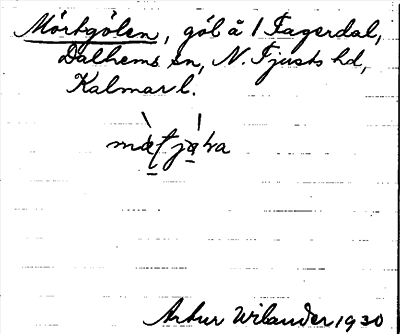 Mörtgölen, göl å 1 Fagerdal,
Dalhems sn, N. Tjusts hd,
Kalmar l.
Artur Wilander 1930